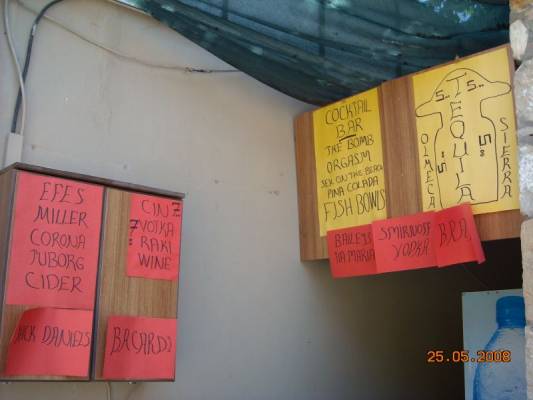 EFES
MILLER
CORONA
TUBORG
CIDER
CIN
VOTKA
RAKI
WINE
JACK DANIELS
BACARDI
COCKTAIL
BAR
THE BOMB
ORGASM
SEX ON THE BEACH
PINA COLADA
FISH BOWLS
TEQUILA
OLMECA
SIERRA
BAILEYS
TIA MARIA
SMIRNOFF
VODKA
25.05.2008